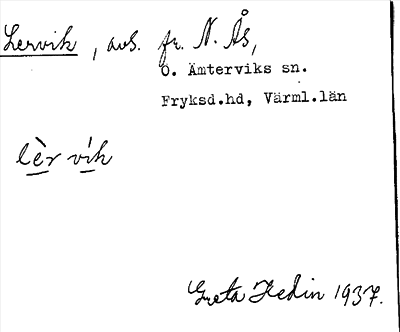 Lervik, avs. fr. N. Ås,
Ö. Ämterviks sn.
Fryksd.hd, Värml.län
lèr vi̍k
Greta Hedin 1937.